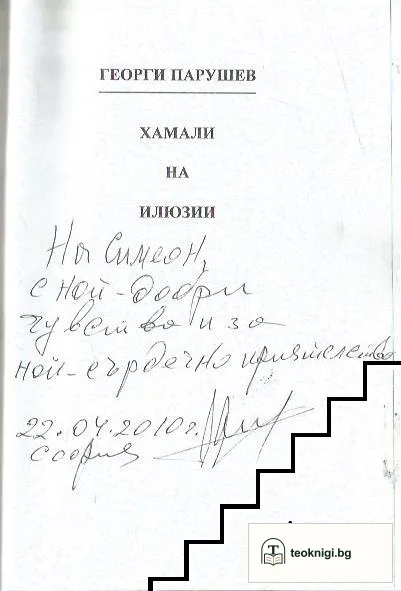 ГЕОРГИ ПАРУШЕВ
ХАМАЛИ
НА
ИЛЮЗИИ
На Симеон,
с най-добри
чувства и за
най-сърдечно приятелство
22.04.2010г.
София
teoknigi.bg